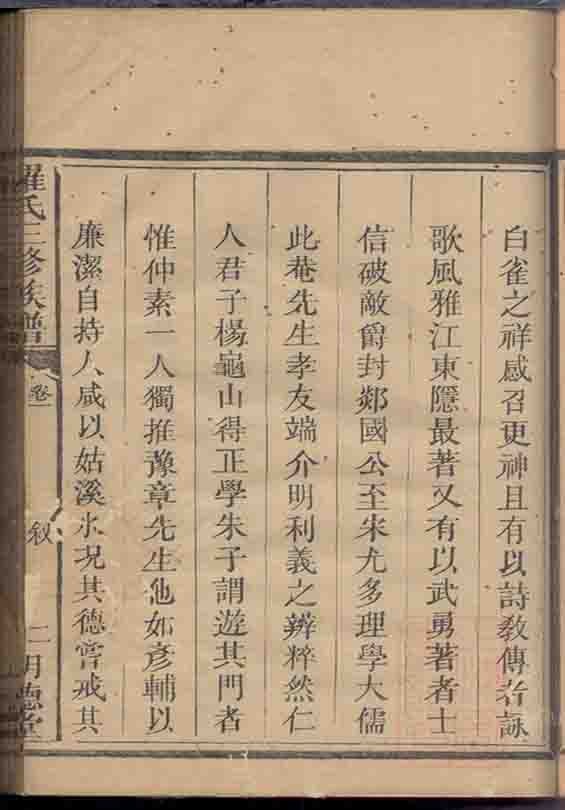 白雀之祥感召更神且有以詩教傳者詠
歌風雅江東隱最著又有以武勇著者士
信破敵爵封郯國公至宋尤多理學大儒
此菴先生孝友端介明利義之辨粹然仁
人君子楊龜山得正學朱子謂遊其門者
惟仲素一人獨推豫章先生他如彥輔以
廉潔自持人咸以姑溪水况其德嘗戒其
羅氏三修族譜 卷一 叙 二 明德堂